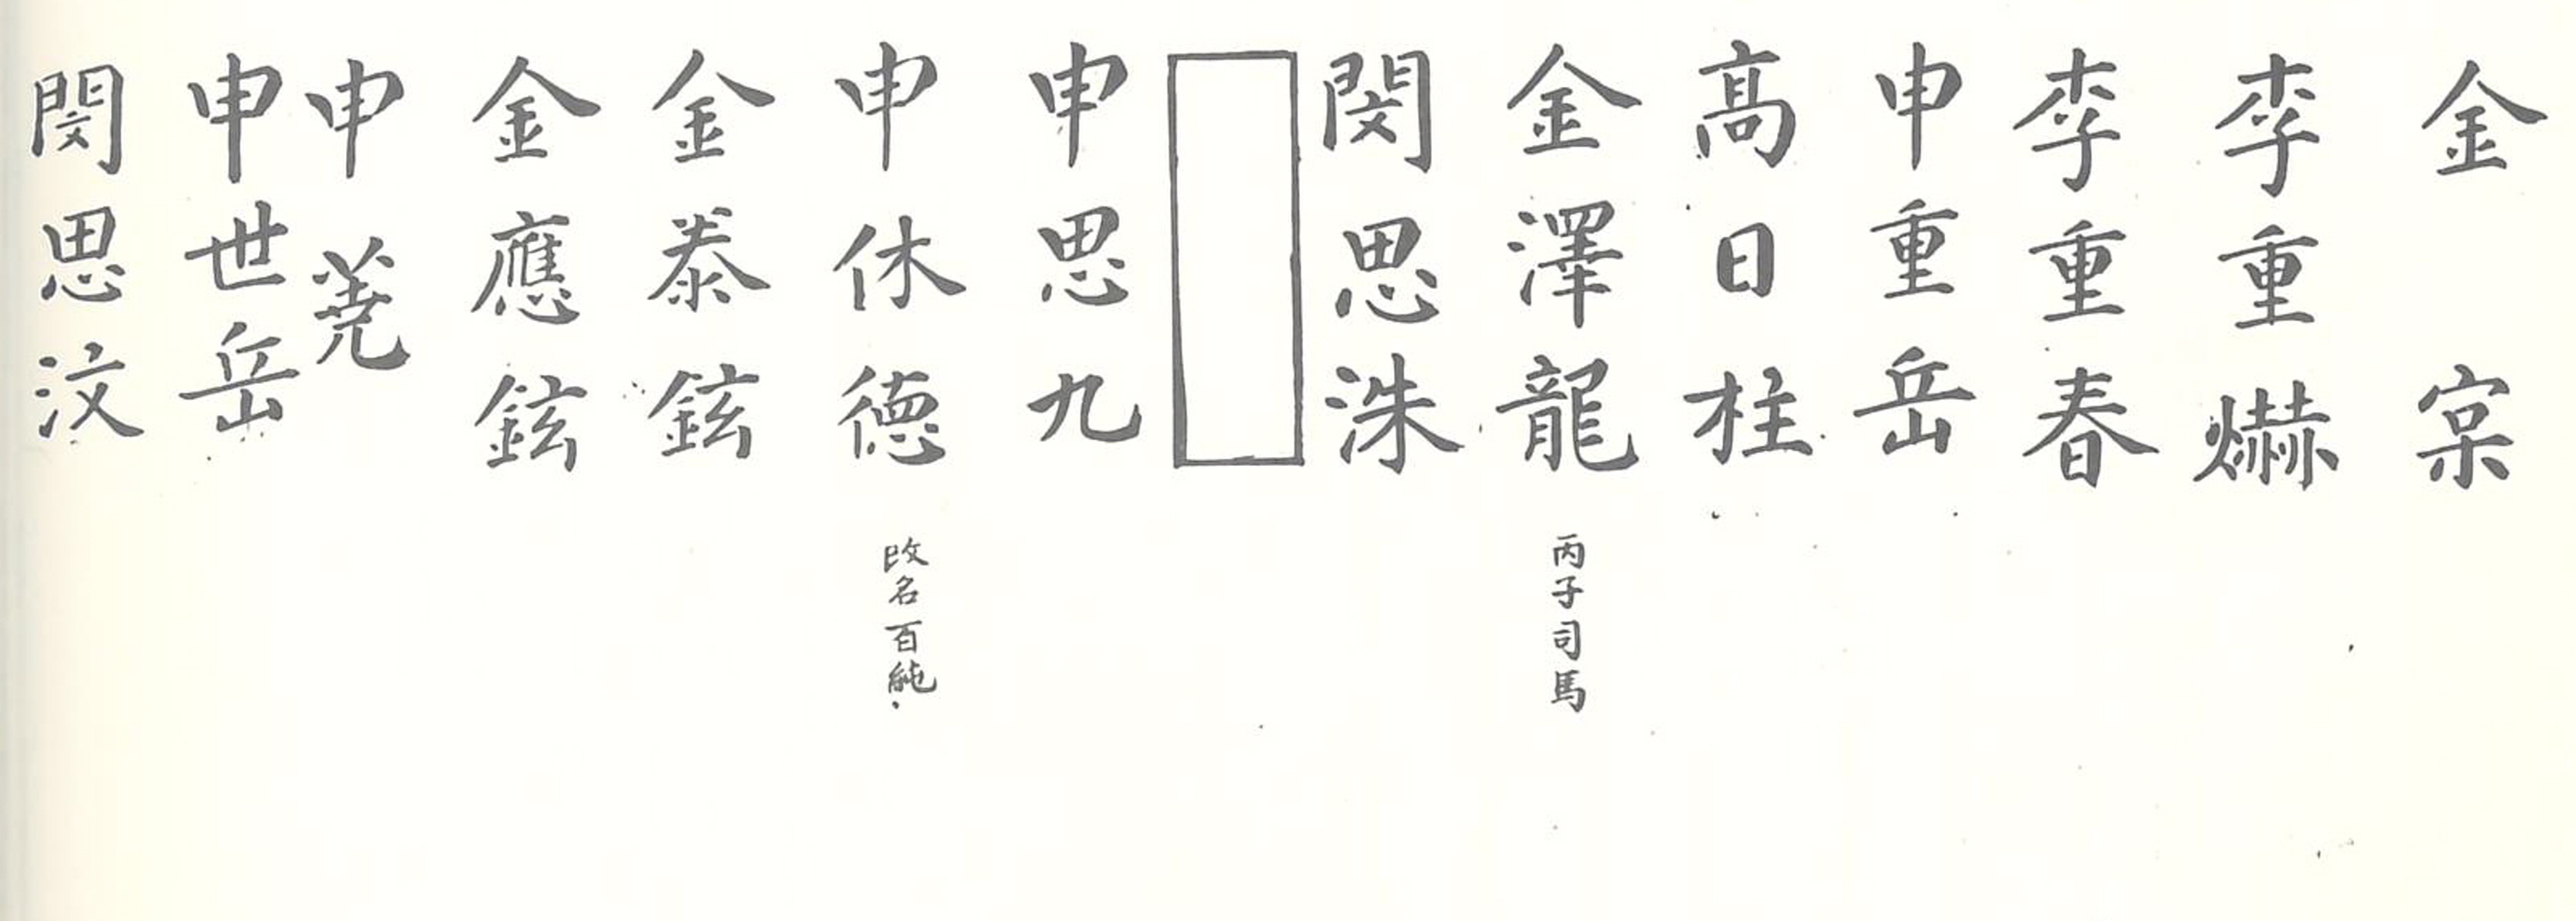 金 宲
李重爀
李重春
申重岳
高日柱
金澤龍 丙子司馬
閔思洙
申思九
申休德 改名百純
金泰鉉
金應鉉
申
申世岳
閔思汶